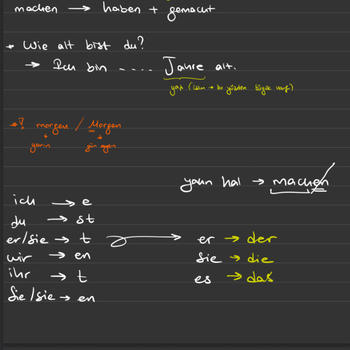 machen → haben + gemacht
* Wie alt bist du?
→ Ich bin ..... Jahre alt.
yaş (isim → bu yüzden büyük harf)
*? morgen / Morgen
yarın
gün aydın
yalın hal → machen
ich → e
du → st
er/sie → t
er → der
wir → en
sie → die
ihr → t
es → das
Sie/sie → en